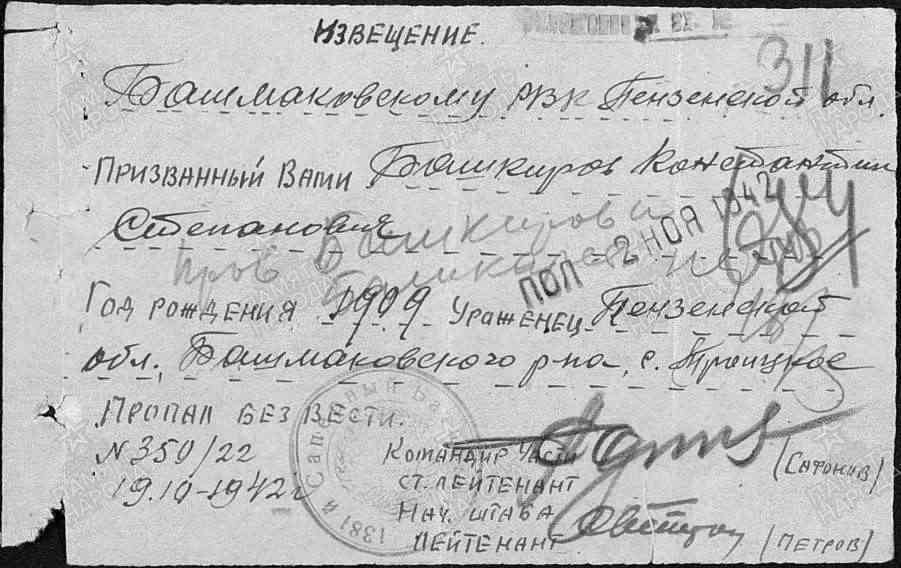 ИЗВЕЩЕНИЕ.
311
Башмаковскому РВК Пензенской обл
Призванный Вами Башкиров Константин
Степанович
Башкиров
ПОЛ - 2 НОЯ 1942
пров
Год рождения 1909 Уроженец Пензенской
обл. Башмаковского р-на, с. Троицкое
Пропал без вести.
N 350/22
19.10-1942г
Командир части
(Сафонов)
ст. лейтенант
Нач. штаба
Лейтенант
(Петров)
1381 й Саперный Бат